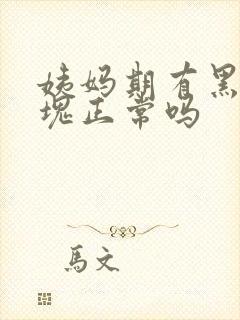 姨妈期有黑
块正常吗
馬文